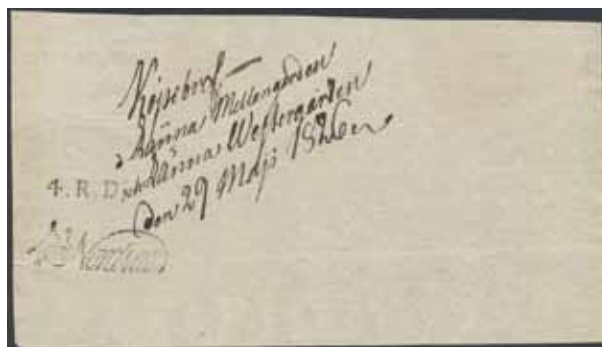 Köpebref
å Hanna Mellangården
och Hanna Westergården
den 29 Maji 1826
4. R. D.